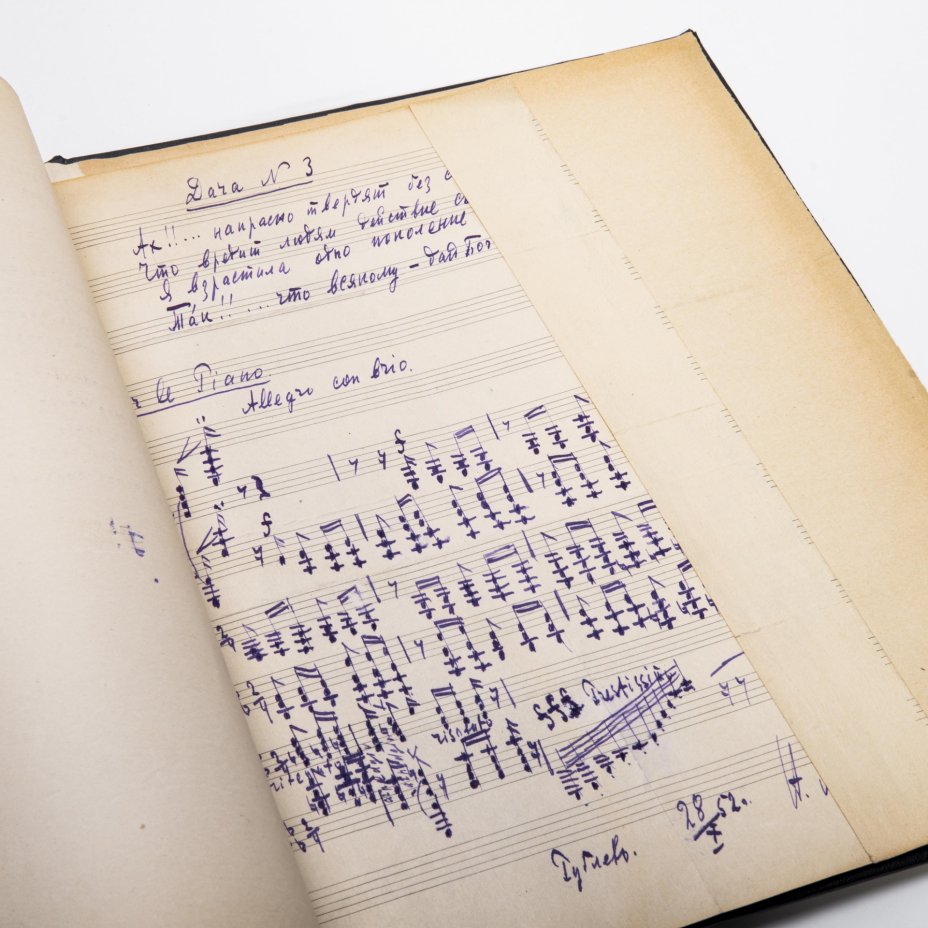 Дача № 3
Ах!!... напрасно твердят без с
Что вредит людям действие с
Я взрастила одно поколение
Так!!...что всякому – дай Бог
r le Piano.
Allegro con brio.
f
f
risoluto
fff Prestissi
28/X 52г.
Рублево.